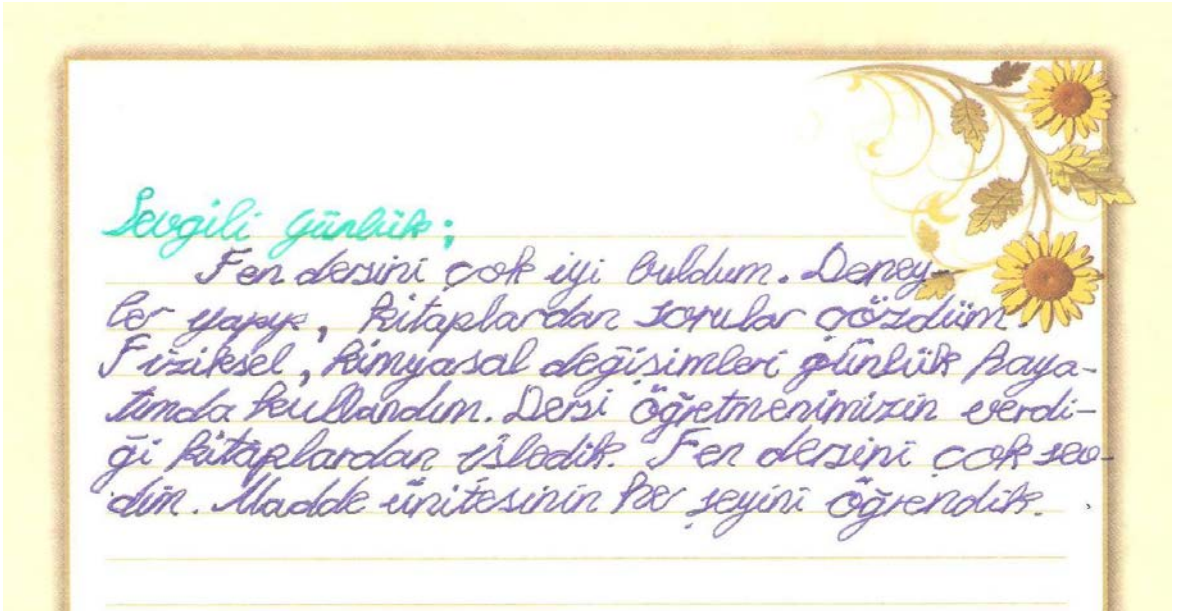 Sevgili günlük;
Fen dersini çok iyi buldum. Deney-
ler yapıp, kitaplardan sorular çözdüm.
Fiziksel, kimyasal değişimleri günlük haya-
tımda kullandım. Dersi öğretmenimizin verdi-
ği kitaplardan işledik. Fen dersini çok sev-
dim. Madde ünitesinin her şeyini öğrendik.